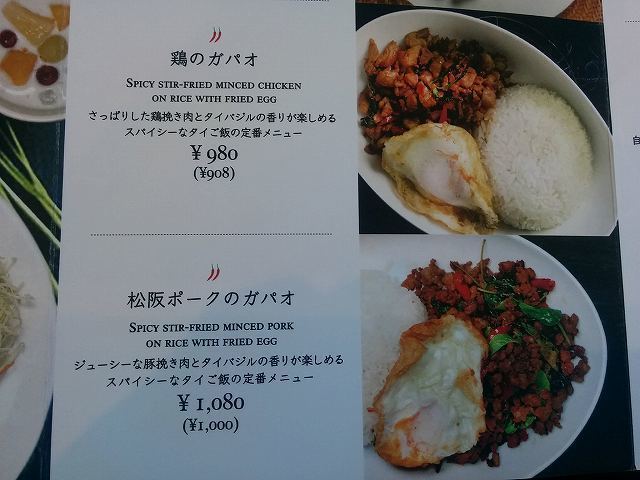 鶏のガパオ
SPICY STIR-FRIED MINCED CHICKEN
ON RICE WITH FRIED EGG
さっぱりした鶏挽き肉とタイバジルの香りが楽しめる
スパイシーなタイご飯の定番メニュー
¥980
(¥908)
松阪ポークのガパオ
SPICY STIR-FRIED MINCED PORK
ON RICE WITH FRIED EGG
ジューシーな豚挽き肉とタイバジルの香りが楽しめる
スパイシーなタイご飯の定番メニュー
¥1,080
(¥1,000)
自